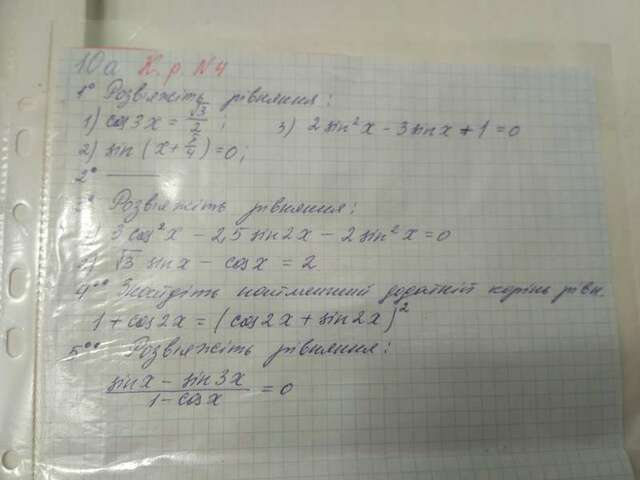 10а К. р. №4
1° Розв'яжіть рівняння:
1) cos 3x = √3/2; 3) 2 sin² x - 3 sin x + 1 = 0
2) sin (x + π/4) = 0;
2° ——
3° Розв'яжіть рівняння:
1) 3 cos² x - 2,5 sin 2x - 2 sin² x = 0
2) √3 sin x - cos x = 2
4°° Знайдіть найменший додатній корінь рівн.
1 + cos 2x = (cos 2x + sin 2x)²
5°° Розв'яжіть рівняння:
(sin x - sin 3x)/(1 - cos x) = 0